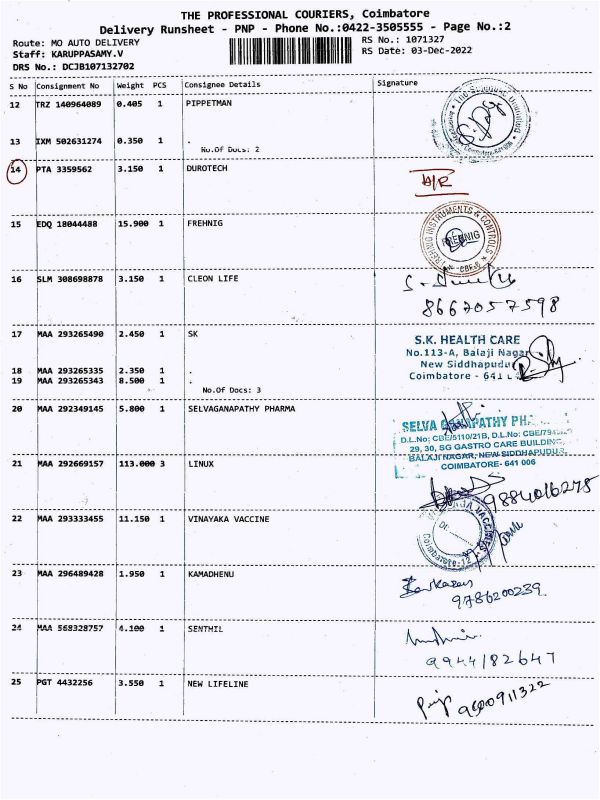 THE PROFESSIONAL COURIERS, Coimbatore
Delivery Runsheet - PNP - Phone No.:0422-3505555 - Page No.:2
Route: MO AUTO DELIVERY
RS No.: 1071327
Staff: KARUPPASAMY.V
RS Date: 03-Dec-2022
DRS No.: DCJB107132702
S No Consignment No Weight PCS Consignee Details Signature
12 TRZ 140964089 0.405 1 PIPPETMAN
13 IXM 502631274 0.350 1 .
No.Of Docs: 2
14 PTA 3359562 3.150 1 DUROTECH
15 EDQ 18044488 15.900 1 FREHNIG
FREHNIG INSTRUMENTS & CONTROLS
FREHNIG
16 SLM 308698878 3.150 1 CLEON LIFE
8667057598
17 MAA 293265490 2.450 1 SK
S.K. HEALTH CARE
No.113-A, Balaji Nagar
New Siddhapudur
Coimbatore - 641
18 MAA 293265335 2.350 1 .
19 MAA 293265343 8.500 1 .
No.Of Docs: 3
20 MAA 292349145 5.800 1 SELVAGANAPATHY PHARMA
SELVA GANAPATHY PH
D.L.No: CBE/5110/21B, D.L.No: CBE/794
29, 30, SG GASTRO CARE BUILDING,
BALAJI NAGAR, NEW SIDDHAPUDUR,
COIMBATORE- 641 006
21 MAA 292669157 113.000 3 LINUX
9884016275
22 MAA 293333455 11.150 1 VINAYAKA VACCINE
Coimbatore-12
23 MAA 296489428 1.950 1 KAMADHENU
9786200239
24 MAA 568328757 4.100 1 SENTHIL
9944182647
25 PGT 4432256 3.550 1 NEW LIFELINE
9600911322